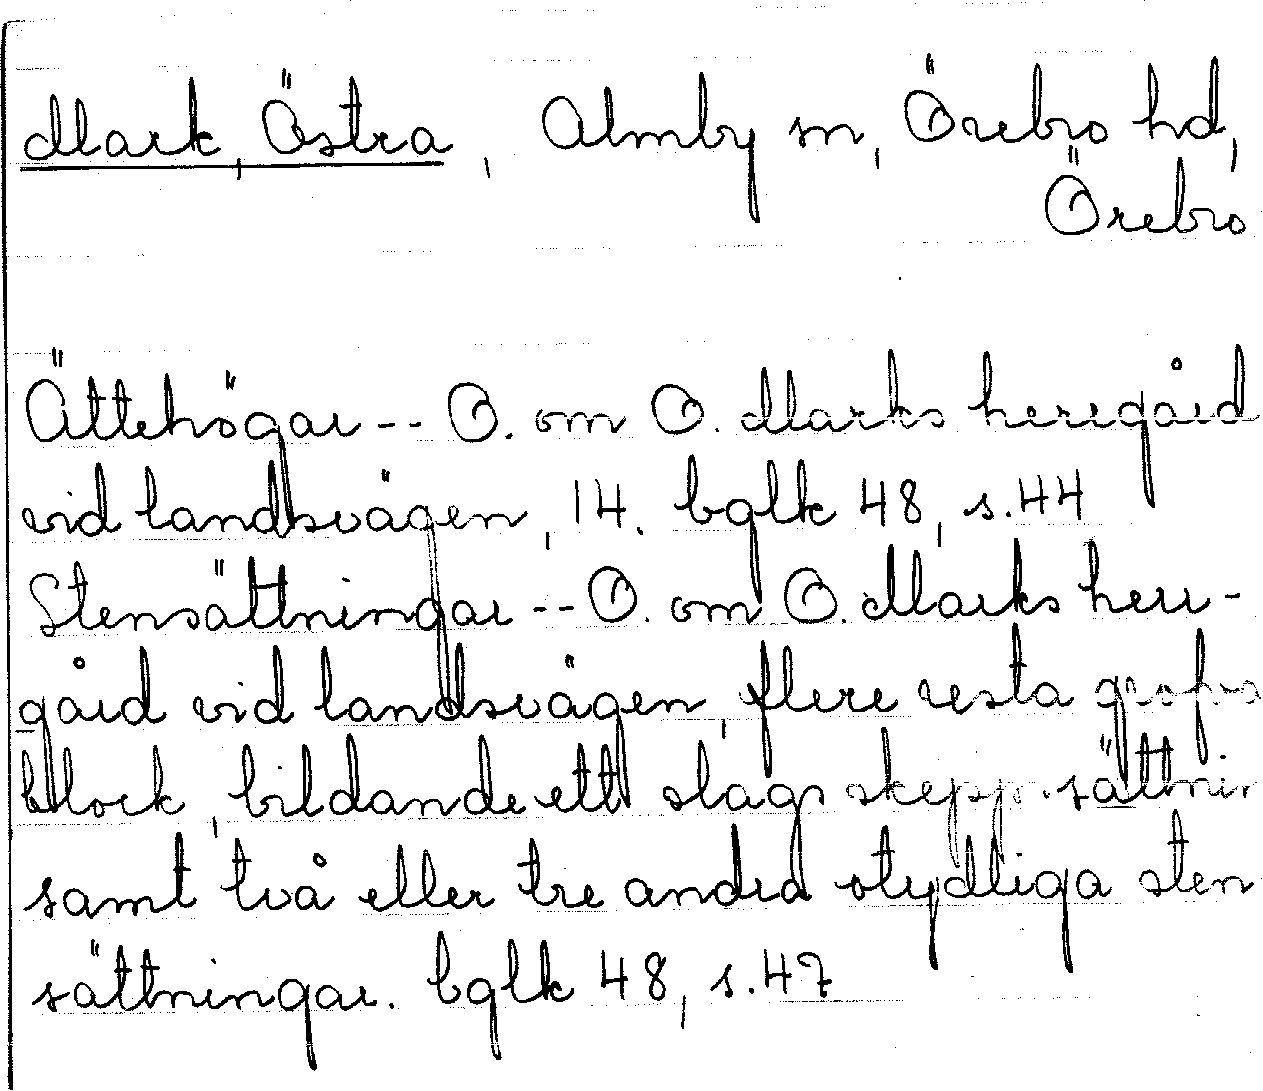 Mark, Östra, Almby sn, Örebro hd,
Örebro
Ättehögar -- O. om O. Marks herregård
vid landsvägen, 14. bglk 48, s. 44
Stensättningar -- O. om O. Marks herr-
gård vid landsvägen, flere resta grofva
block, bildande ett slags skepp.sättnin
samt två eller tre andra otydliga sten
sättningar. bglk 48, s. 47